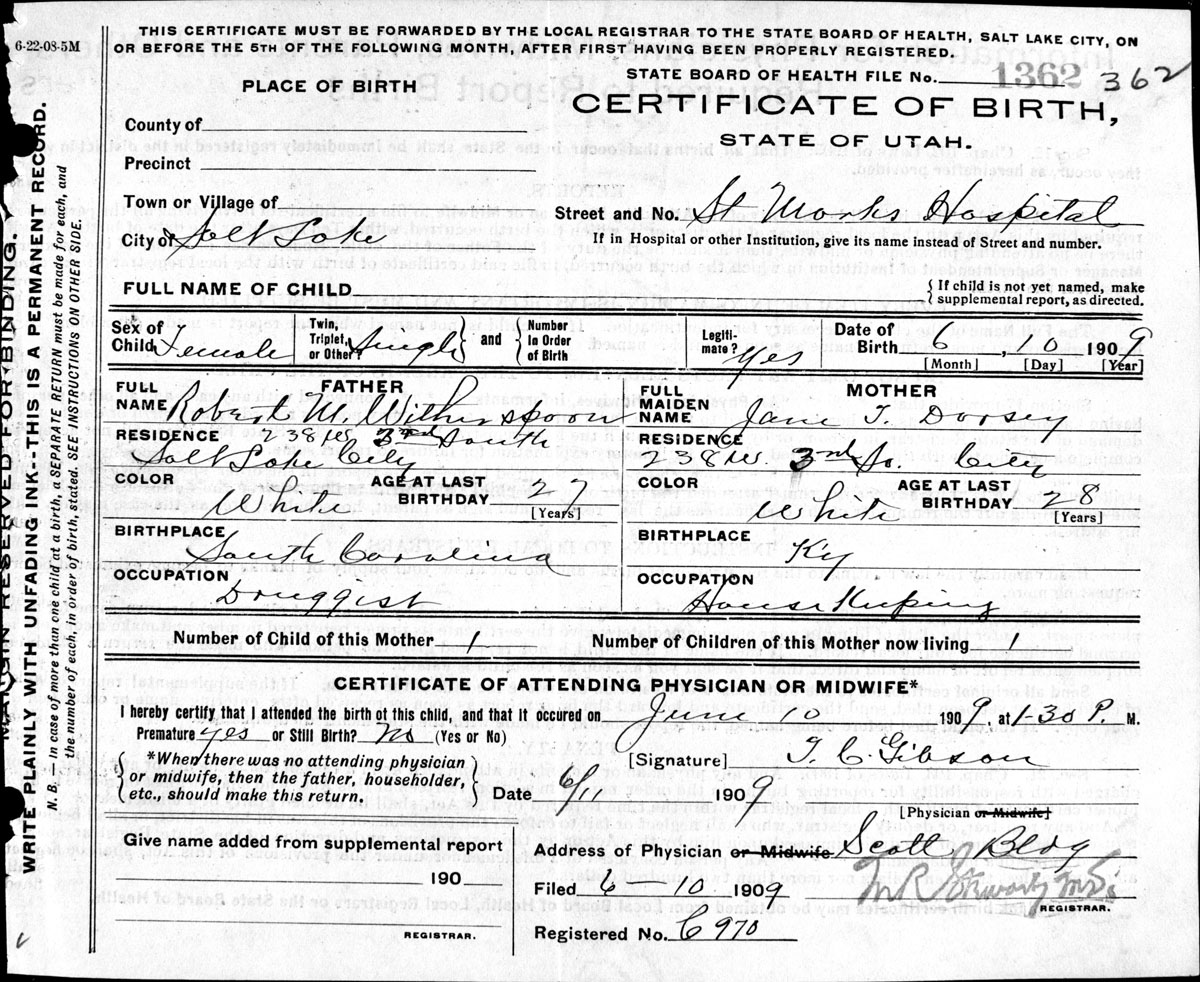 6-22-08-5M
THIS CERTIFICATE MUST BE FORWARDED BY THE LOCAL REGISTRAR TO THE STATE BOARD OF HEALTH, SALT LAKE CITY, ON
OR BEFORE THE 5TH OF THE FOLLOWING MONTH, AFTER FIRST HAVING BEEN PROPERLY REGISTERED.
STATE BOARD OF HEALTH FILE No. 1362 362
PLACE OF BIRTH
CERTIFICATE OF BIRTH,
STATE OF UTAH.
County of
Precinct
Town or Village of
Street and No. St Marks Hospital
City of Salt Lake
If in Hospital or other Institution, give its name instead of Street and number.
FULL NAME OF CHILD
If child is not yet named, make
supplemental report, as directed.
Sex of Child Female
Twin, Triplet, or Other? Single and Number In Order of Birth
Legiti-mate? Yes
Date of Birth 6, 10 1909
[Month] [Day] [Year]
FATHER
FULL NAME Robert M. Witherspoon
RESIDENCE 238 W. 3rd South
Salt Lake City
COLOR White AGE AT LAST BIRTHDAY 27
[Years]
BIRTHPLACE South Carolina
OCCUPATION Druggist
MOTHER
FULL MAIDEN NAME Jane T. Dorsey
RESIDENCE
238 W. 3rd So. City
COLOR White AGE AT LAST BIRTHDAY 28
[Years]
BIRTHPLACE Ky
OCCUPATION House Keeping
Number of Child of this Mother 1 Number of Children of this Mother now living 1
CERTIFICATE OF ATTENDING PHYSICIAN OR MIDWIFE*
I hereby certify that I attended the birth of this child, and that it occured on June 10 1909, at 1-30 P. M.
Premature yes or Still Birth? No (Yes or No)
*When there was no attending physician
or midwife, then the father, householder,
etc., should make this return.
[Signature] T. C. Gibson
Date 6/11 1909
[Physician or Midwife]
Give name added from supplemental report
190
REGISTRAR.
Address of Physician or Midwife Scott Bldg
Filed 6 10 1909
REGISTRAR.
Registered No. C 970
MARGIN RESERVED FOR BINDING.
WRITE PLAINLY WITH UNFADING INK--THIS IS A PERMANENT RECORD.
N. B.—In case of more than one child at a birth, a SEPARATE RETURN must be made for each, and
the number of each, in order of birth, stated. SEE INSTRUCTIONS ON OTHER SIDE.